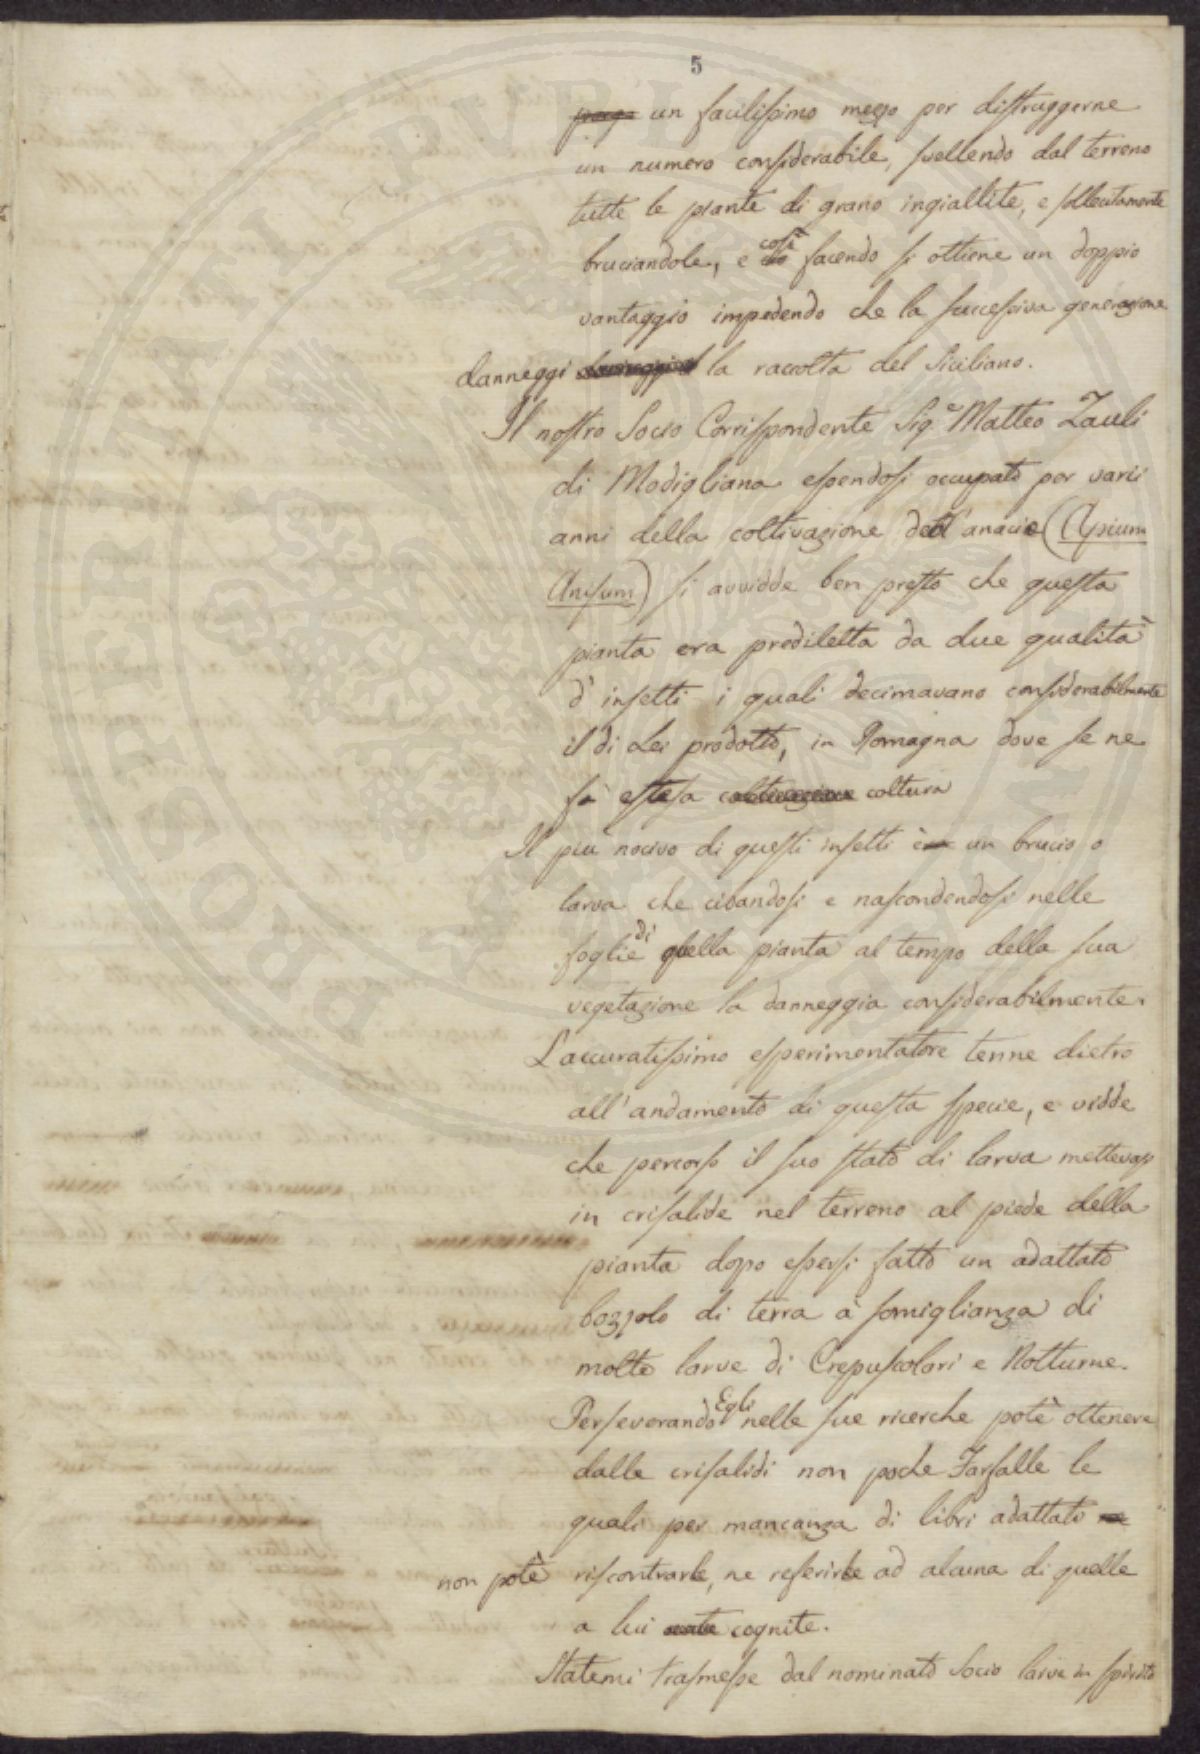 5
porge un facilissimo mezzo per distruggerne
un numero considerabile, svellendo dal terreno
tutte le piante di grano ingiallite, e sollecitamente
bruciandole, e così facendo si ottiene un doppio
vantaggio impedendo che la successiva generazione
danneggi la raccolta del Siciliano.
Il nostro Socio Corrispondente Sigr. Matteo Zauli
di Modigliana essendosi occupato per varii
anni della coltivazione dell'anacio (Apium
Anisum) si avvidde ben presto che questa
pianta era prediletta da due qualità
d'insetti i quali decimavano considerabilmente
il di Lei prodotto, in Romagna dove se ne
fà estesa coltivazione coltura
Il più nocivo di questi insetti è un brucio o
larva che cibandosi e nascondendosi nelle
foglie di quella pianta al tempo della sua
vegetazione la danneggia considerabilmente.
L'accuratissimo esperimentatore tenne dietro
all'andamento di questa specie, e vidde
che percorso il suo stato di larva mettevasi
in crisalide nel terreno al piede della
pianta dopo essersi fatto un adattato
bozzolo di terra à somiglianza di
molte larve di Crepuscolari e Notturne.
Perseverando Egli nelle sue ricerche potè ottenere
dalle crisalidi non poche Farfalle le
quali per mancanza di libri adattati
non potè riscontrarle, ne referirle ad alcuna di quelle
a lui note cognite.
Statemi trasmesse dal nominato Socio larve in spirito
PRIVATI PVBLICE